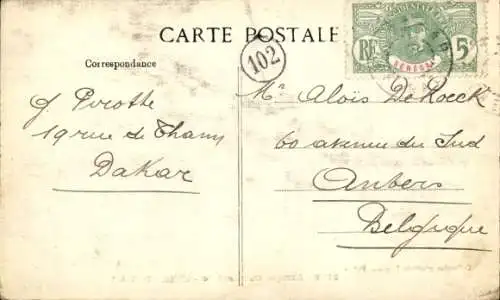 CARTE POSTALE
Correspondance
102
RF
5
SÉNÉGAL
J. Pirotte
19 rue de Thann
Dakar
Mr Aloïs De Kock
60 avenue du Sud
Anvers
Belgique